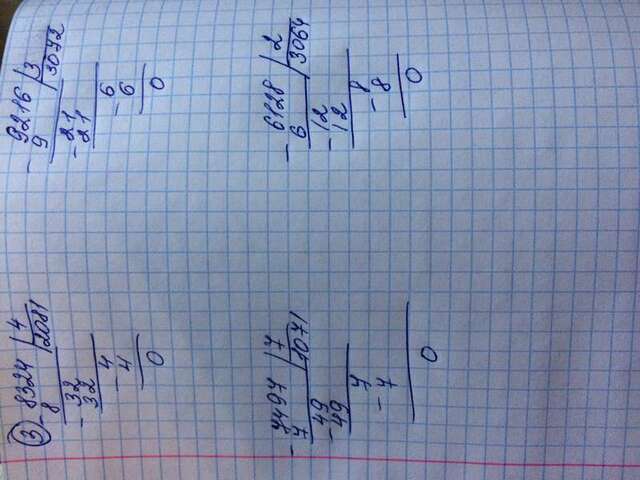 ③ 8324 | 4
- 8 | 2081
- 32
32
- 4
4
0
- 9216 | 3
9 | 3072
- 21
21
- 6
6
0
- 7497 | 7
7 | 1071
- 49
49
- 7
7
0
- 6128 | 2
6 | 3064
- 12
12
- 8
8
0